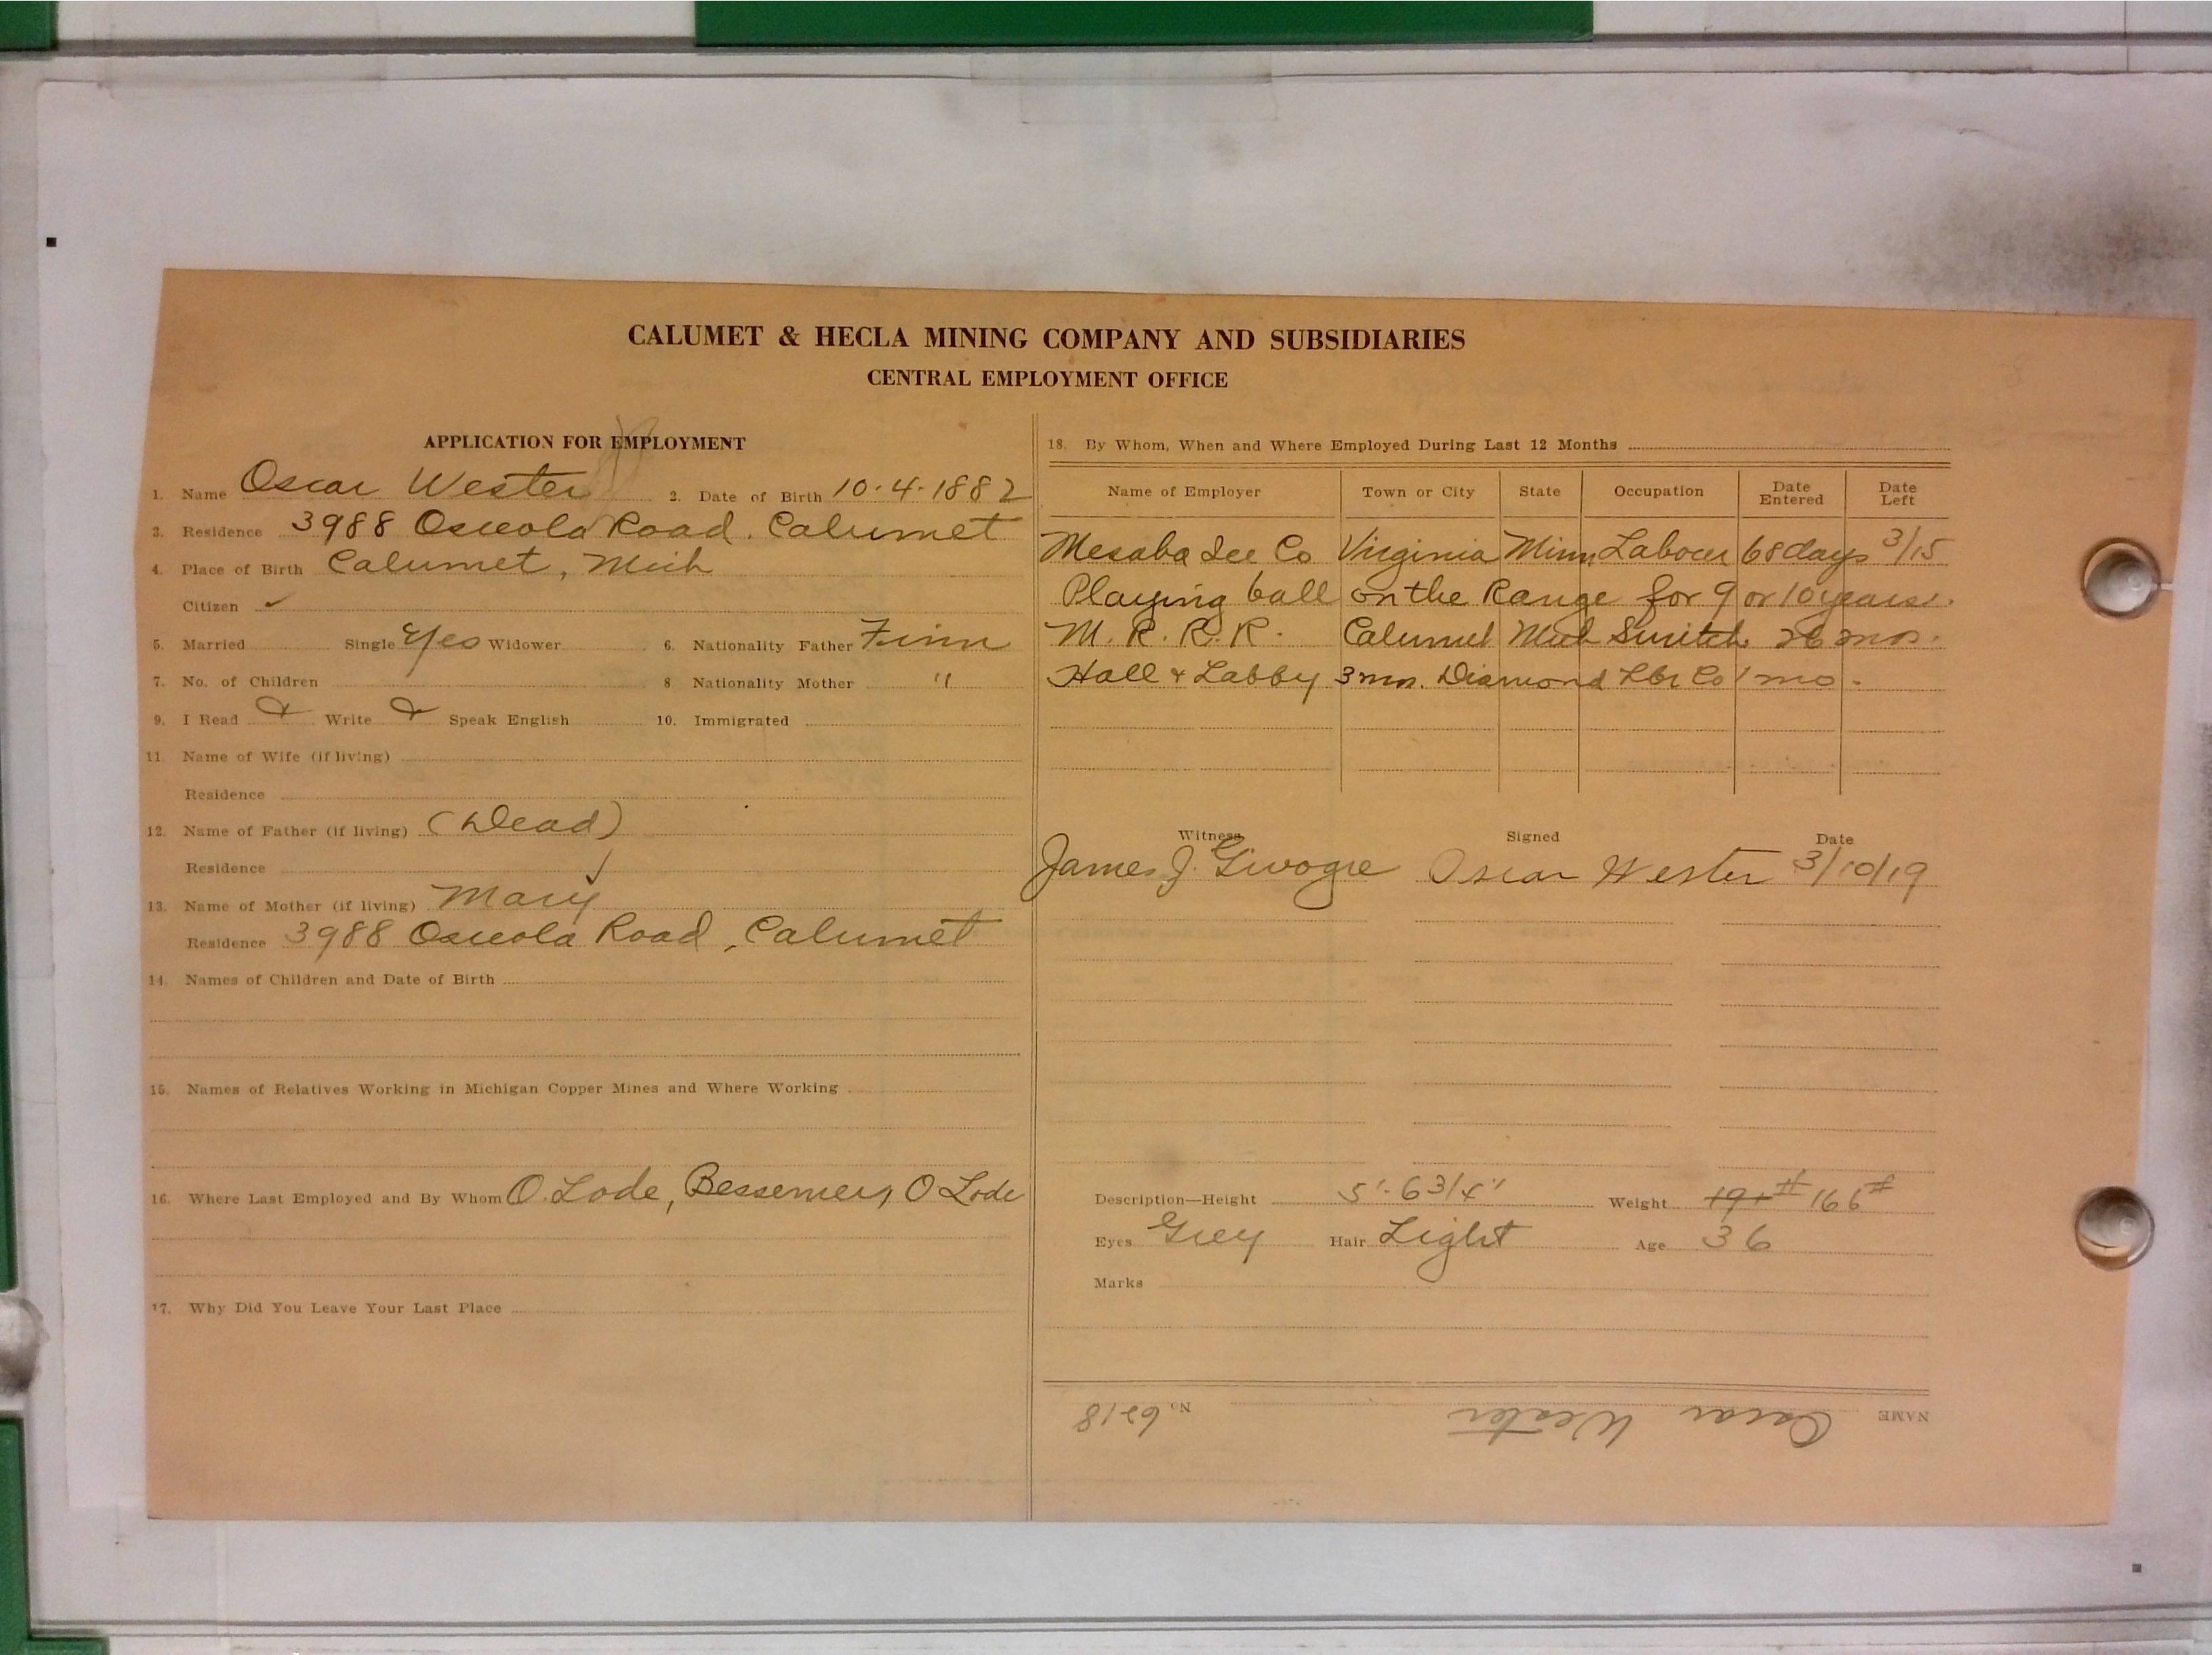 CALUMET & HECLA MINING COMPANY AND SUBSIDIARIES
CENTRAL EMPLOYMENT OFFICE
APPLICATION FOR EMPLOYMENT
1. Name Oscar Wester 2. Date of Birth 10·4·1882
3. Residence 3988 Osceola Road. Calumet
4. Place of Birth Calumet, Mich
Citizen ✓
5. Married Single Yes Widower 6. Nationality Father Finn
7. No. of Children 8 Nationality Mother "
9. I Read Write Speak English 10. Immigrated
11. Name of Wife (if living)
Residence
12. Name of Father (if living) (Dead)
Residence
13. Name of Mother (if living) Mary
Residence 3988 Osceola Road, Calumet
14. Names of Children and Date of Birth
15. Names of Relatives Working in Michigan Copper Mines and Where Working
16. Where Last Employed and By Whom O. Lode, Bessemer, O Lode
17. Why Did You Leave Your Last Place
18. By Whom, When and Where Employed During Last 12 Months
Name of Employer Town or City State Occupation Date Entered Date Left
Mesaba Ice Co Virginia Minn Labour 68 days 3/15
Playing ball on the Range for 9 or 10 years.
M. R. R. R. Calumet Mich Switch mos.
Hall & Labby 3 mos. Diamond Lbr Co 1 mo.
Witness Signed Date
James J. Oscar Wester 3/10/19
Description—Height 5'-6 3/4" Weight 191# 166#
Eyes Grey Hair Light Age 36
Marks
NAME Oscar Wester No. 6218